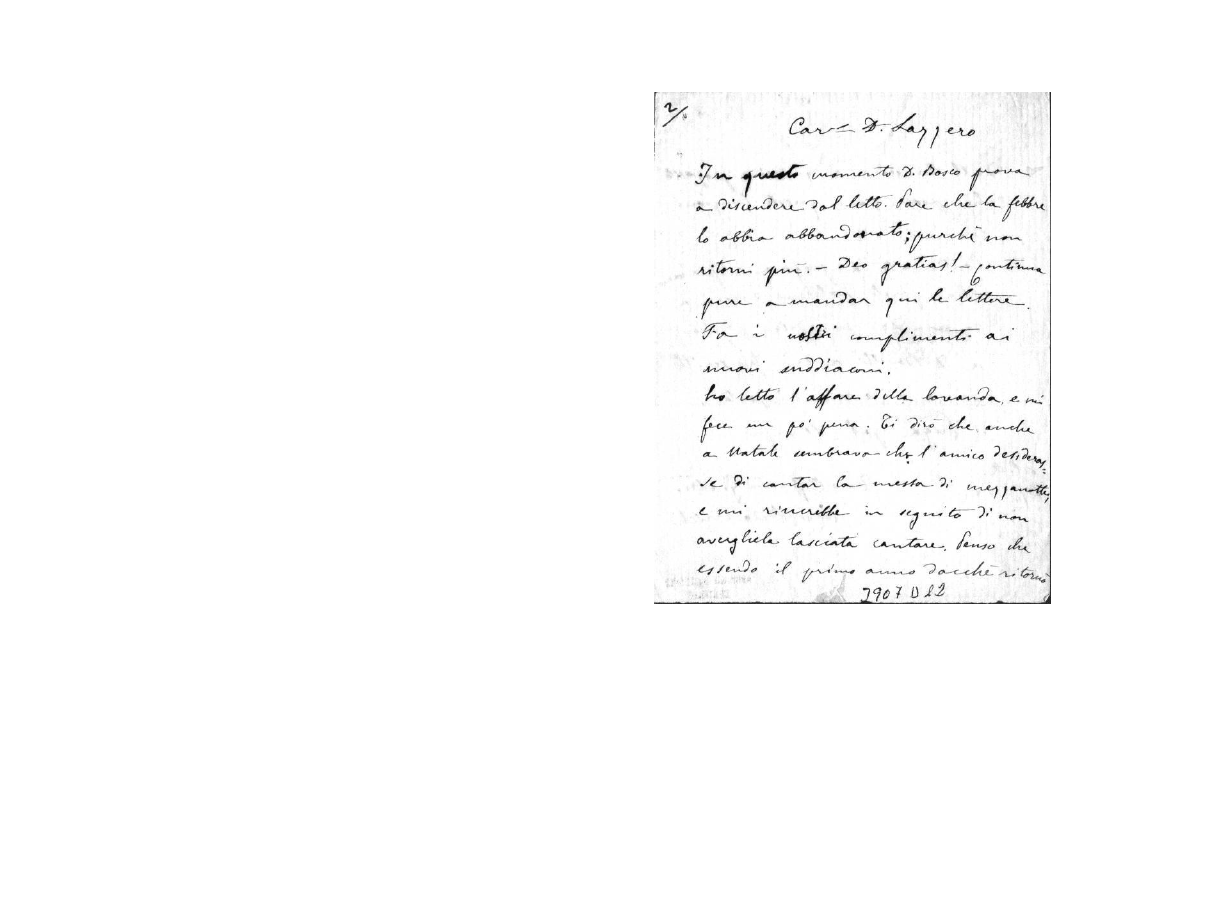 2/
Car.mo D. Lazzero
In questo momento D. Bosco prova
a discendere dal letto. Pare che la febbre
lo abbia abbandonato; purchè non
ritorni più. – Deo gratias! – Continua
pure a mandar qui le lettere.
Fa i nostri complimenti ai
nuovi suddiaconi.
ho letto l'affare della lavanda, e mi
fece un po' pena. Ti dirò che anche
a Natale sembrava che l'amico desideras=
se di cantar la messa di mezzanotte,
e mi rincrebbe in seguito di non
avergliela lasciata cantare. Penso che
essendo il primo anno dacchè ritornò
2907 D 12